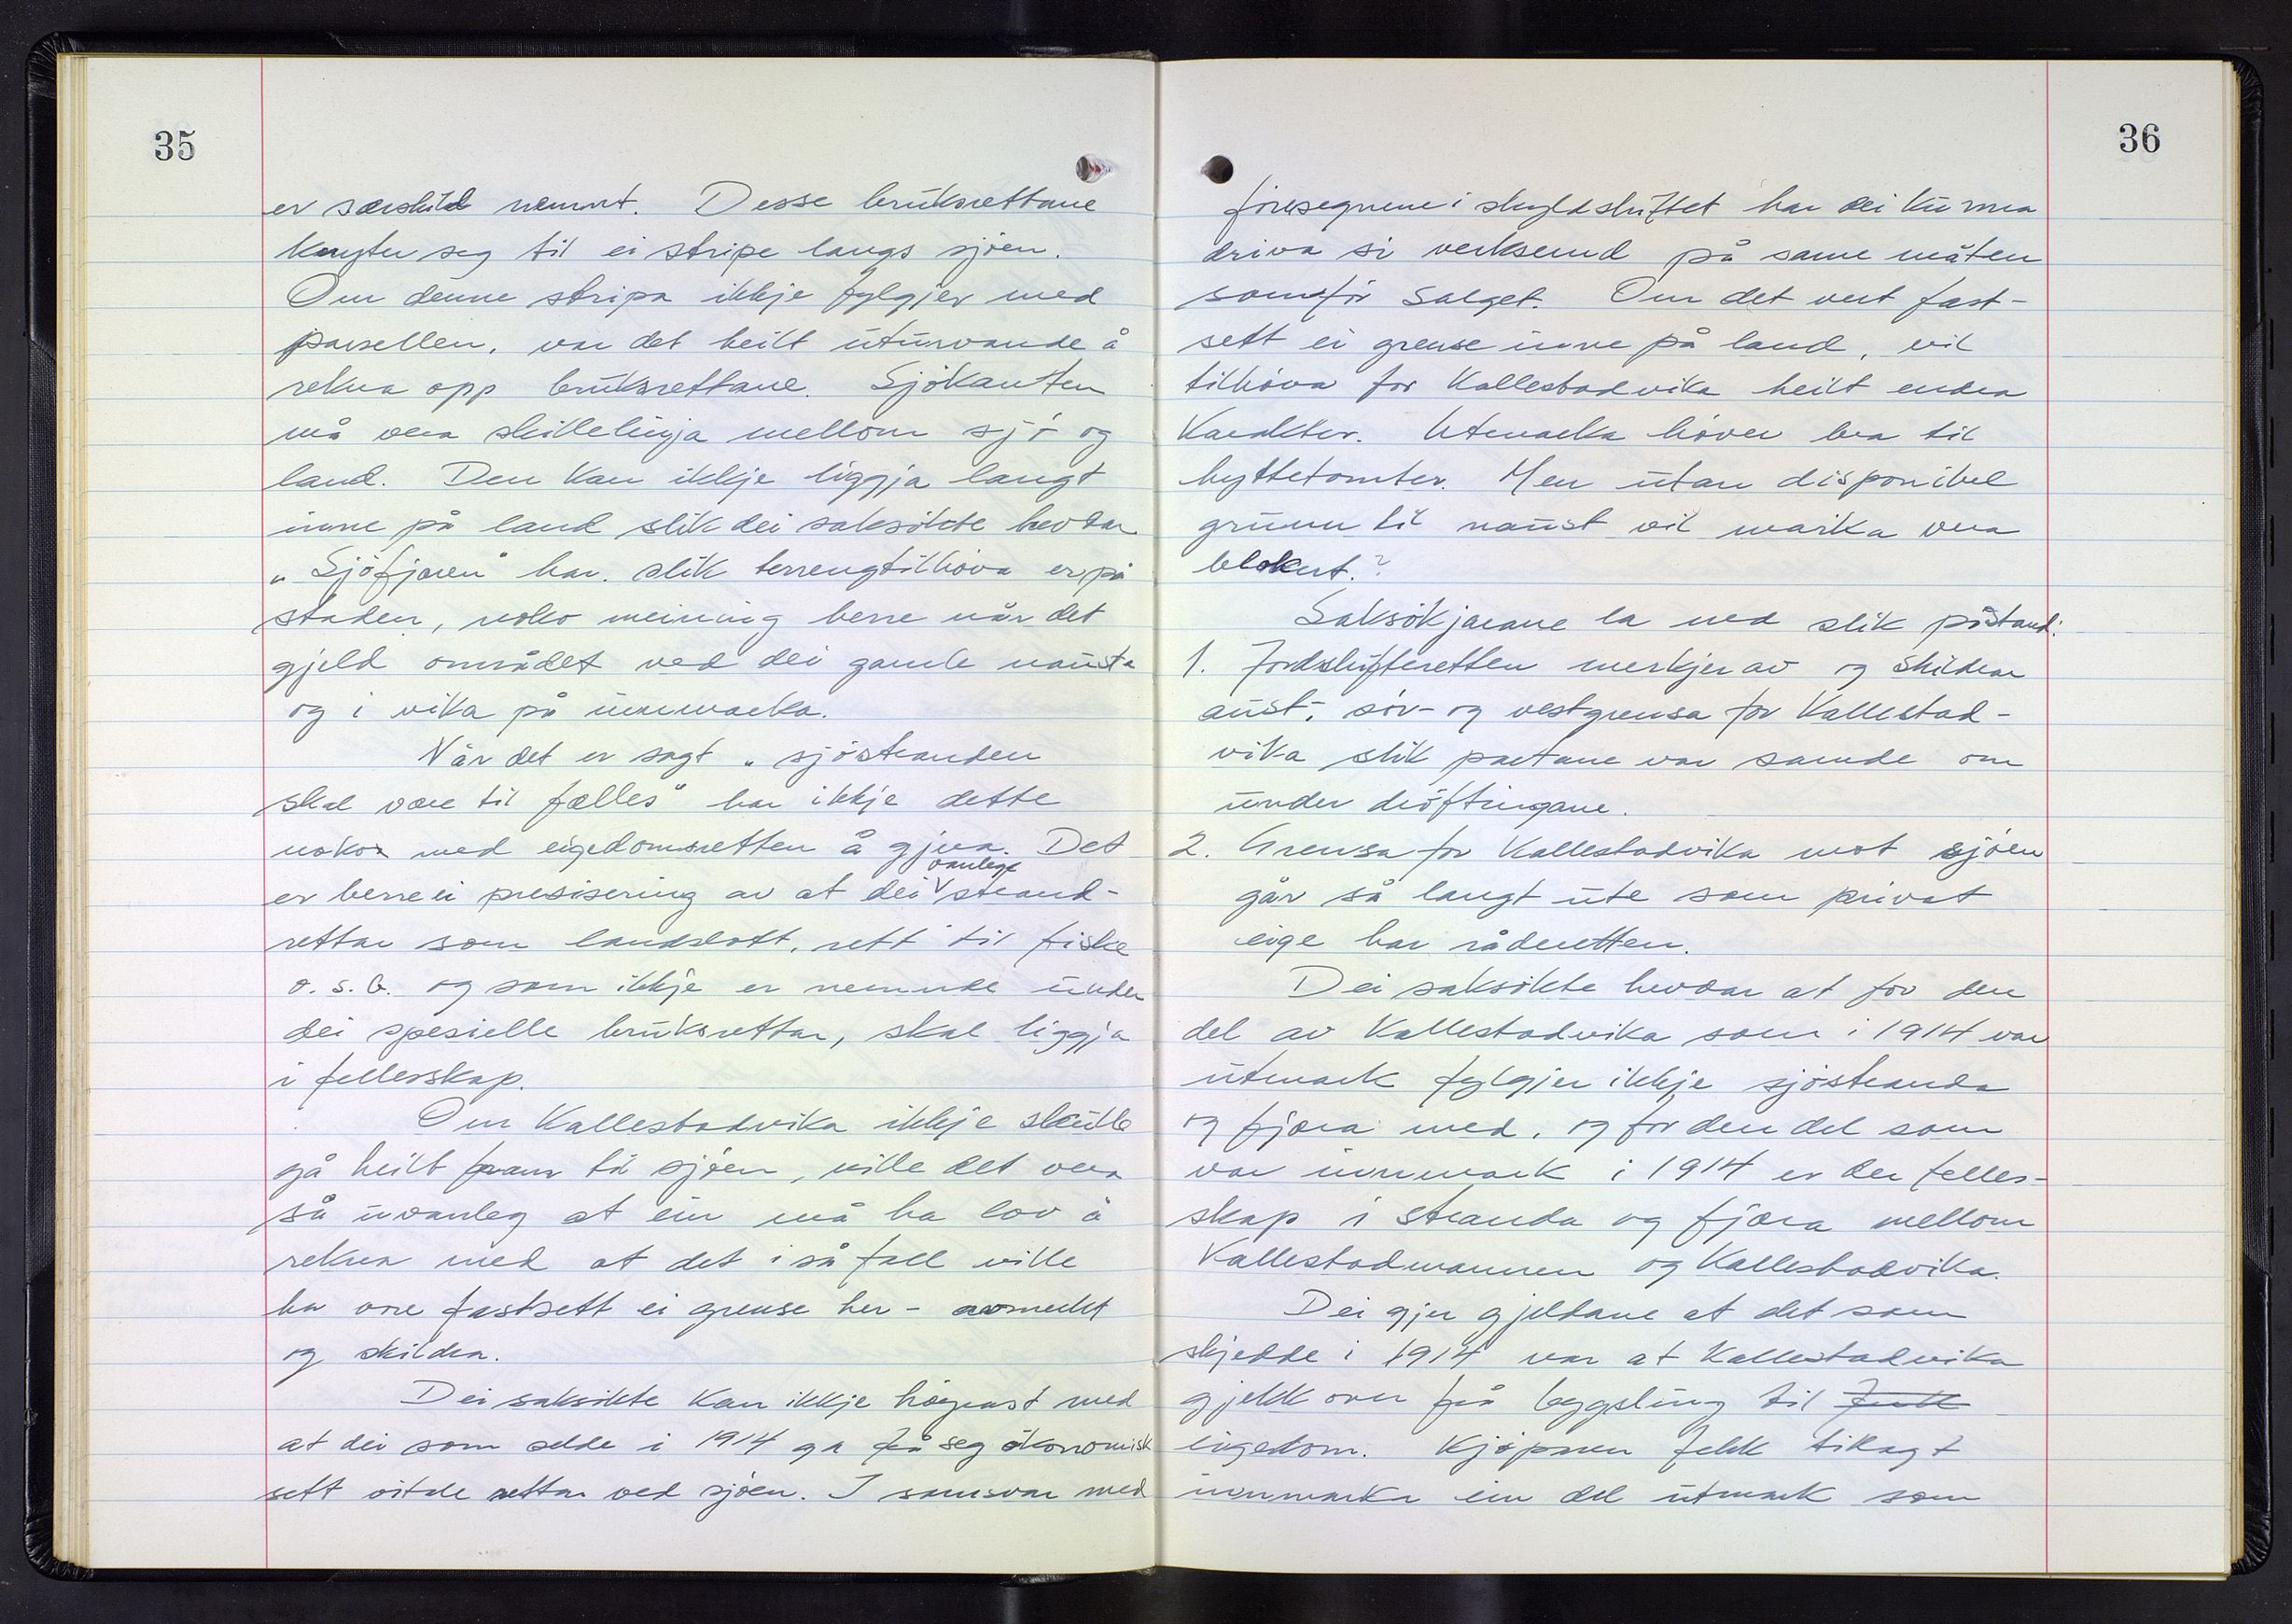 35
er særskild nemnt. Desse bruksrettane
knyter seg til ei stripe langs sjöen.
Om denne stripa ikkje fylgjer med
parsellen, var det heilt uturvande å
rekna opp bruksrettane. Sjökanten
må vera skillelinja mellom sjö og
land. Den kan ikkje liggja langt
inne på land slik dei saksökte hevdar.
„Sjöfjæren" har, slik terrengtilhöva er på
staden, noko meining berre når det
gjeld området ved dei gamle nausta
og i vika på innmarka.
Når det er sagt „sjöstranden
skal være til fælles" har ikkje dette
noko med eigedomsretten å gjera. Det
er berre ei presisering av at dei vanlege strand-
rettar som landslott, rett til fiske
o.s.b. og som ikkje er nemnde under
dei spesielle bruksrettar, skal liggja
i fellesskap.
Om Kallestadvika ikkje skulle
gå heilt fram til sjöen, ville det vera
så uvanleg at ein må ha lov å
rekna med at det i så fall ville
ha vore fastsett ei grense her - avmerkt
og skildra.
Dei saksökte kan ikkje höyrast med
at dei som selde i 1914 ga frå seg ökonomisk
sett vitale rettar ved sjöen. I samsvar med
36
föresegnene i skyldskiftet har dei kunna
driva si verksemd på same måten
som för salget. Om det vert fast-
sett ei grense inne på land, vil
tilhöva for Kallestadvika heilt endra
karakter. Utmarka höver bra til
hyttetomter. Men utan disponibel
grunn til naust vil marka vera
blokert.?
Saksökjarane la ned slik påstand:
1. Jordskifteretten merkjer av og skildrar
aust-, sör- og vestgrensa for Kallestad-
vika slik partane var samde om
under dröftingane.
2. Grensa for Kallestadvika mot sjöen
går så langt ute som privat
eige har råderetten.
Dei saksökte hevdar at for den
del av Kallestadvika som i 1914 var
utmark fylgjer ikkje sjöstranda
og fjöra med, og for den del som
var innmark i 1914 er der felles-
skap i stranda og fjæra mellom
Kallestadmannen og Kallestadvika.
Dei gjer gjeldane at det som
skjedde i 1914 var at Kallestadvika
gjekk over frå bygsling til
eigedom. Kjöparen fekk tillagt
innmarka ein del utmark som